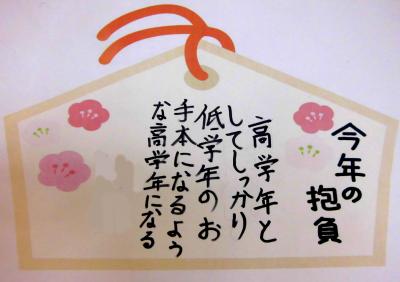 今年の抱負
高学年と
してしっかり
低学年のお
手本になるよう
な高学年になる